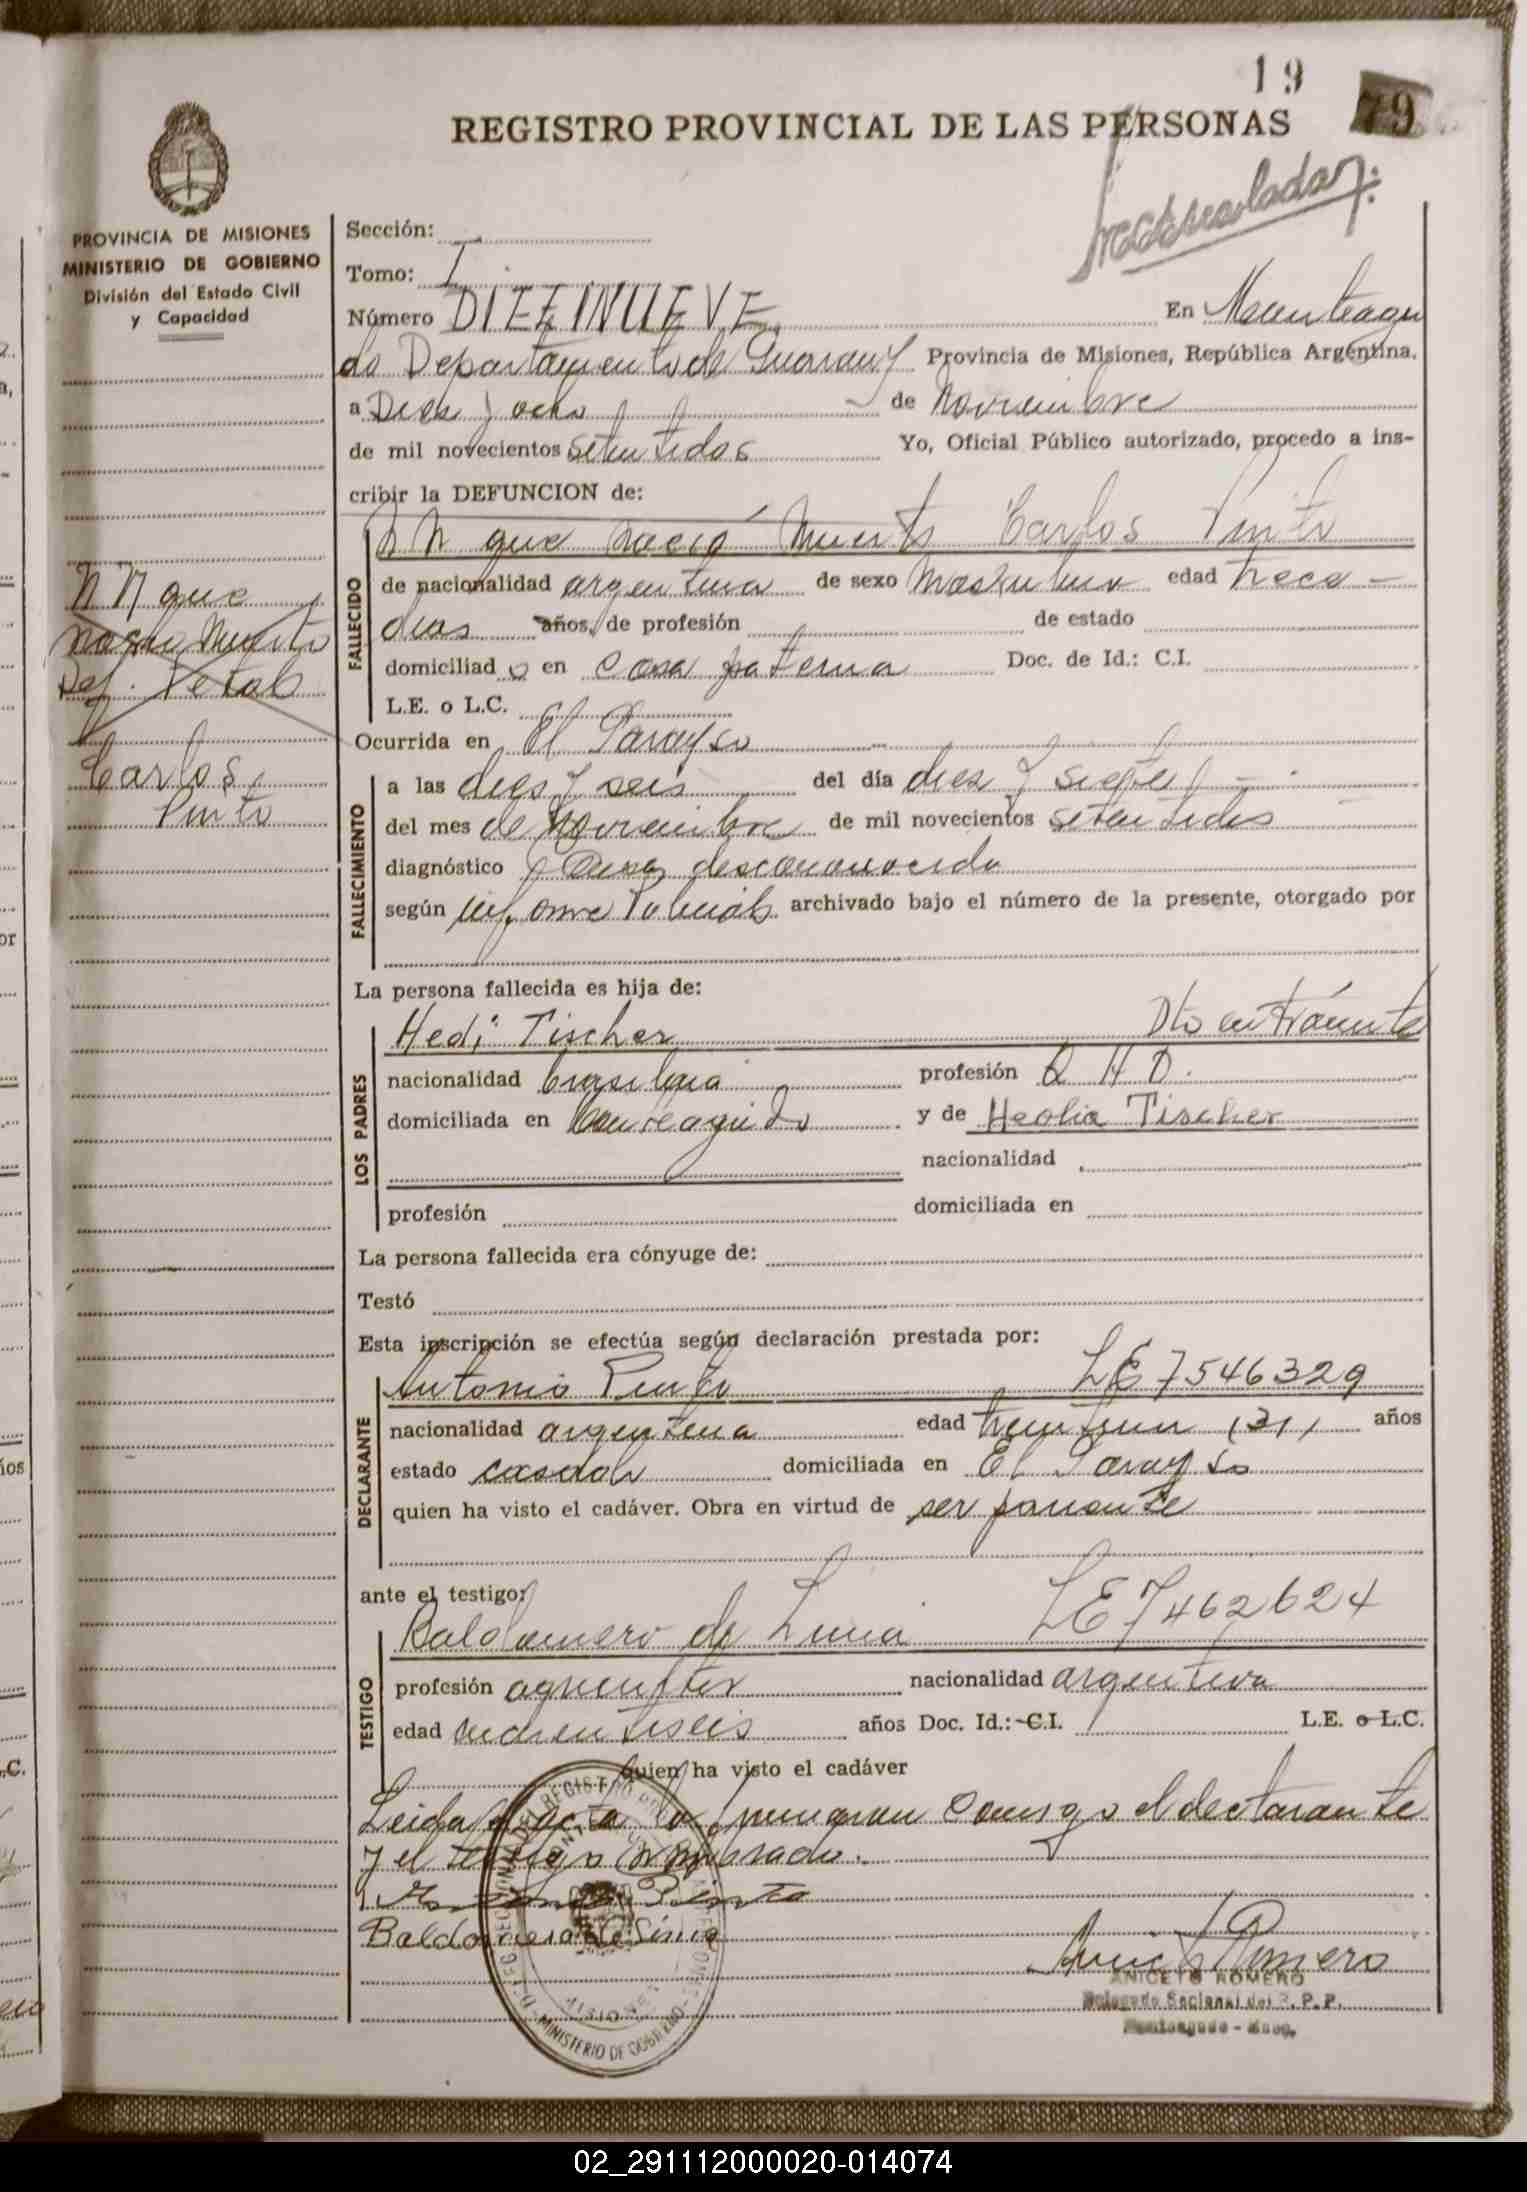 19
79
REGISTRO PROVINCIAL DE LAS PERSONAS
PROVINCIA DE MISIONES
MINISTERIO DE GOBIERNO
División del Estado Civil
y Capacidad
Sección:
Tomo: I
Número DIEZINUEVE En Monteagu
do Departamento de Guarany Provincia de Misiones, República Argentina.
a Dies y ocho de Noviembre
de mil novecientos setentidos Yo, Oficial Público autorizado, procedo a ins-
cribir la DEFUNCION de:
N N que nació muerto Carlos Pinto
N N que
nació Muerto
Def. Fetal
Carlos
Pinto
FALLECIDO
de nacionalidad argentina de sexo Maskulino edad trece
dias años, de profesión de estado
domiciliad o en Casa paterna Doc. de Id.: C.I.
L.E. o L.C.
Ocurrida en El Parayso
FALLECIMIENTO
a las dies y seis del día dies y siete
del mes de Noviembre de mil novecientos setentidos
diagnóstico Causa desconouocida
según informe Policial archivado bajo el número de la presente, otorgado por
La persona fallecida es hija de:
LOS PADRES
Hedi Tischer Dto en Trámite
nacionalidad brasilera profesión Q H D.
domiciliada en Monteagudo y de Heolia Tischer
nacionalidad
profesión domiciliada en
La persona fallecida era cónyuge de:
Testó
Esta inscripción se efectúa según declaración prestada por:
DECLARANTE
Antonio Pinto LE 7546329
nacionalidad argentina edad treintiun (31) años
estado casado domiciliada en El Parayso
quien ha visto el cadáver. Obra en virtud de ser pariente
ante el testigo:
TESTIGO
Baldomero de Lima LE 7462624
profesión agricultor nacionalidad argentina
edad cuarentiseis años Doc. Id.: C.I. L.E. o L.C.
quien ha visto el cadáver
Leida el acta la firmaron conmigo el declarante
y el testigo nombrado.
Pinto
Baldomero de Lima
MINISTERIO DE GOBIERNO
MISIONES
Aniceto Romero
ANICETO ROMERO
Delegado Seccional del R. P. P.
Monteagudo - Mnes.
02_291112000020-014074